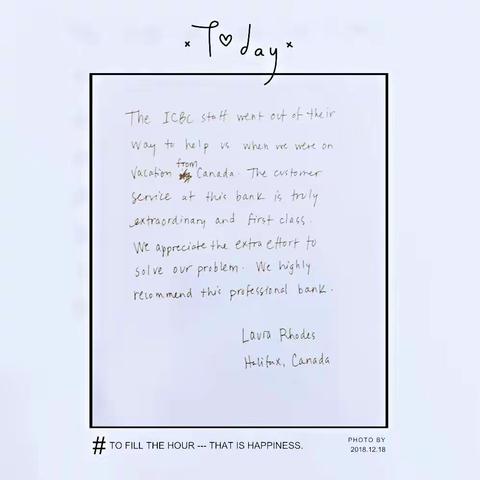 Today
The ICBC staff went out of their
way to help us when we were on
vacation from Canada. The customer
service at this bank is truly
extraordinary and first class.
We appreciate the extra effort to
solve our problem. We highly
recommend this professional bank.
Laura Rhodes
Halifax, Canada
# TO FILL THE HOUR --- THAT IS HAPPINESS.
PHOTO BY
2018.12.18